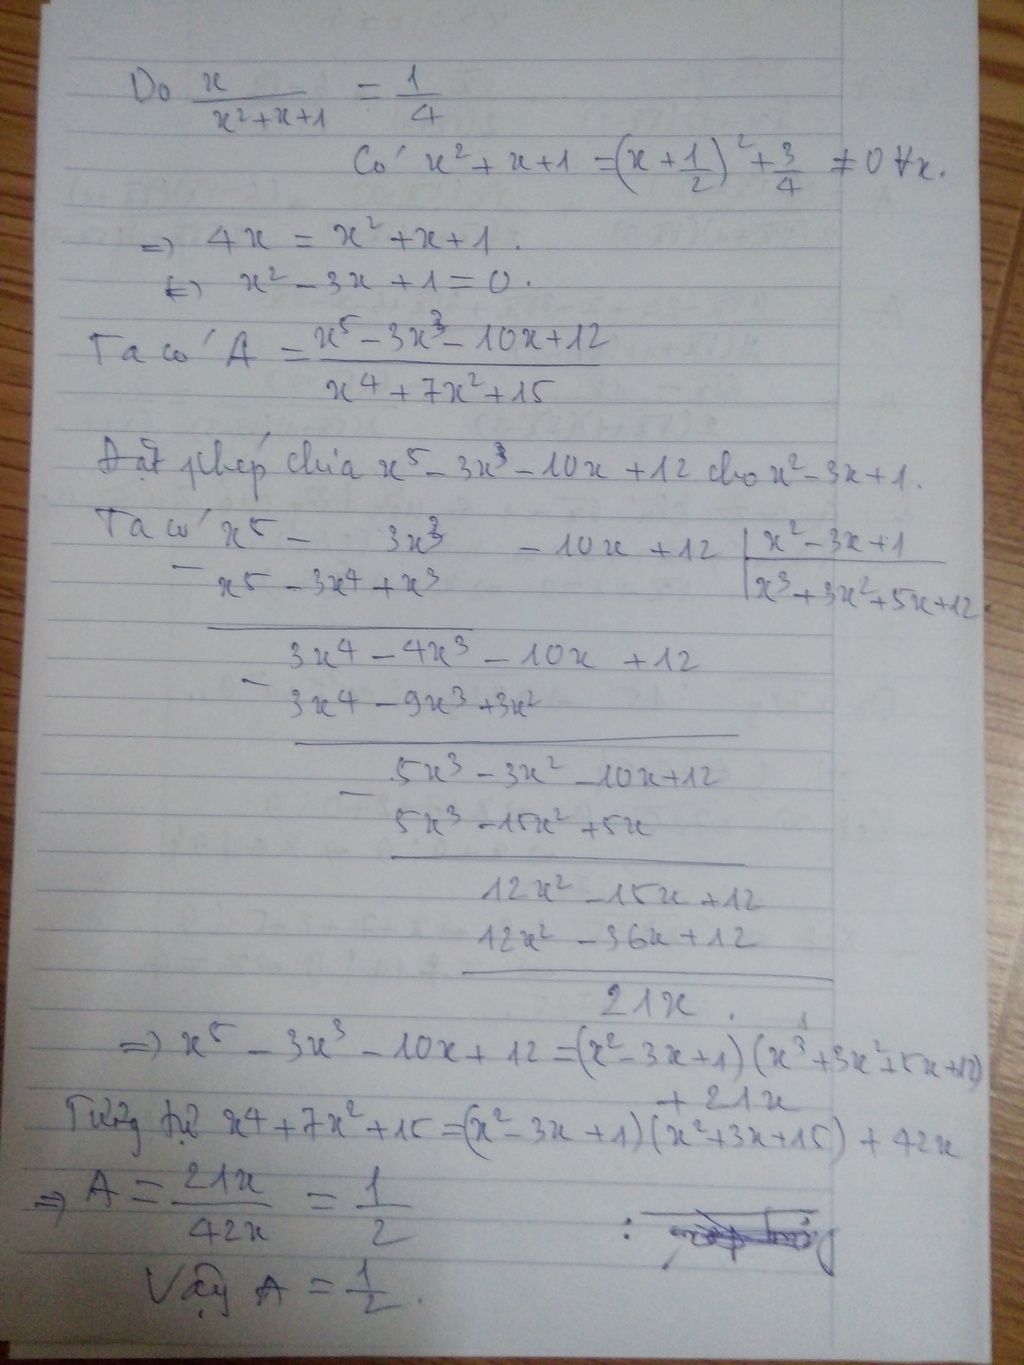 Do x/(x²+x+1) = 1/4
Có x²+x+1 = (x+1/2)²+3/4 ≠0 ∀x.
=> 4x = x²+x+1.
<=> x²-3x+1=0.
Ta có A = (x⁵-3x³-10x+12)/(x⁴+7x²+15)
Đặt phép chia x⁵-3x³-10x+12 cho x²-3x+1.
Ta có x⁵- 3x³ -10x +12 | x²-3x+1
- x⁵-3x⁴+x³ | x³+3x²+5x+12.
3x⁴-4x³-10x +12
- 3x⁴-9x³+3x²
5x³-3x²-10x+12
- 5x³-15x²+5x
12x²-15x+12
12x²-36x+12
21x.
=> x⁵-3x³-10x+12=(x²-3x+1)(x³+3x²+5x+12)
+21x
Tương tự x⁴+7x²+15=(x²-3x+1)(x²+3x+15)+42x
=> A = 21x/42x = 1/2
Vậy A = 1/2.